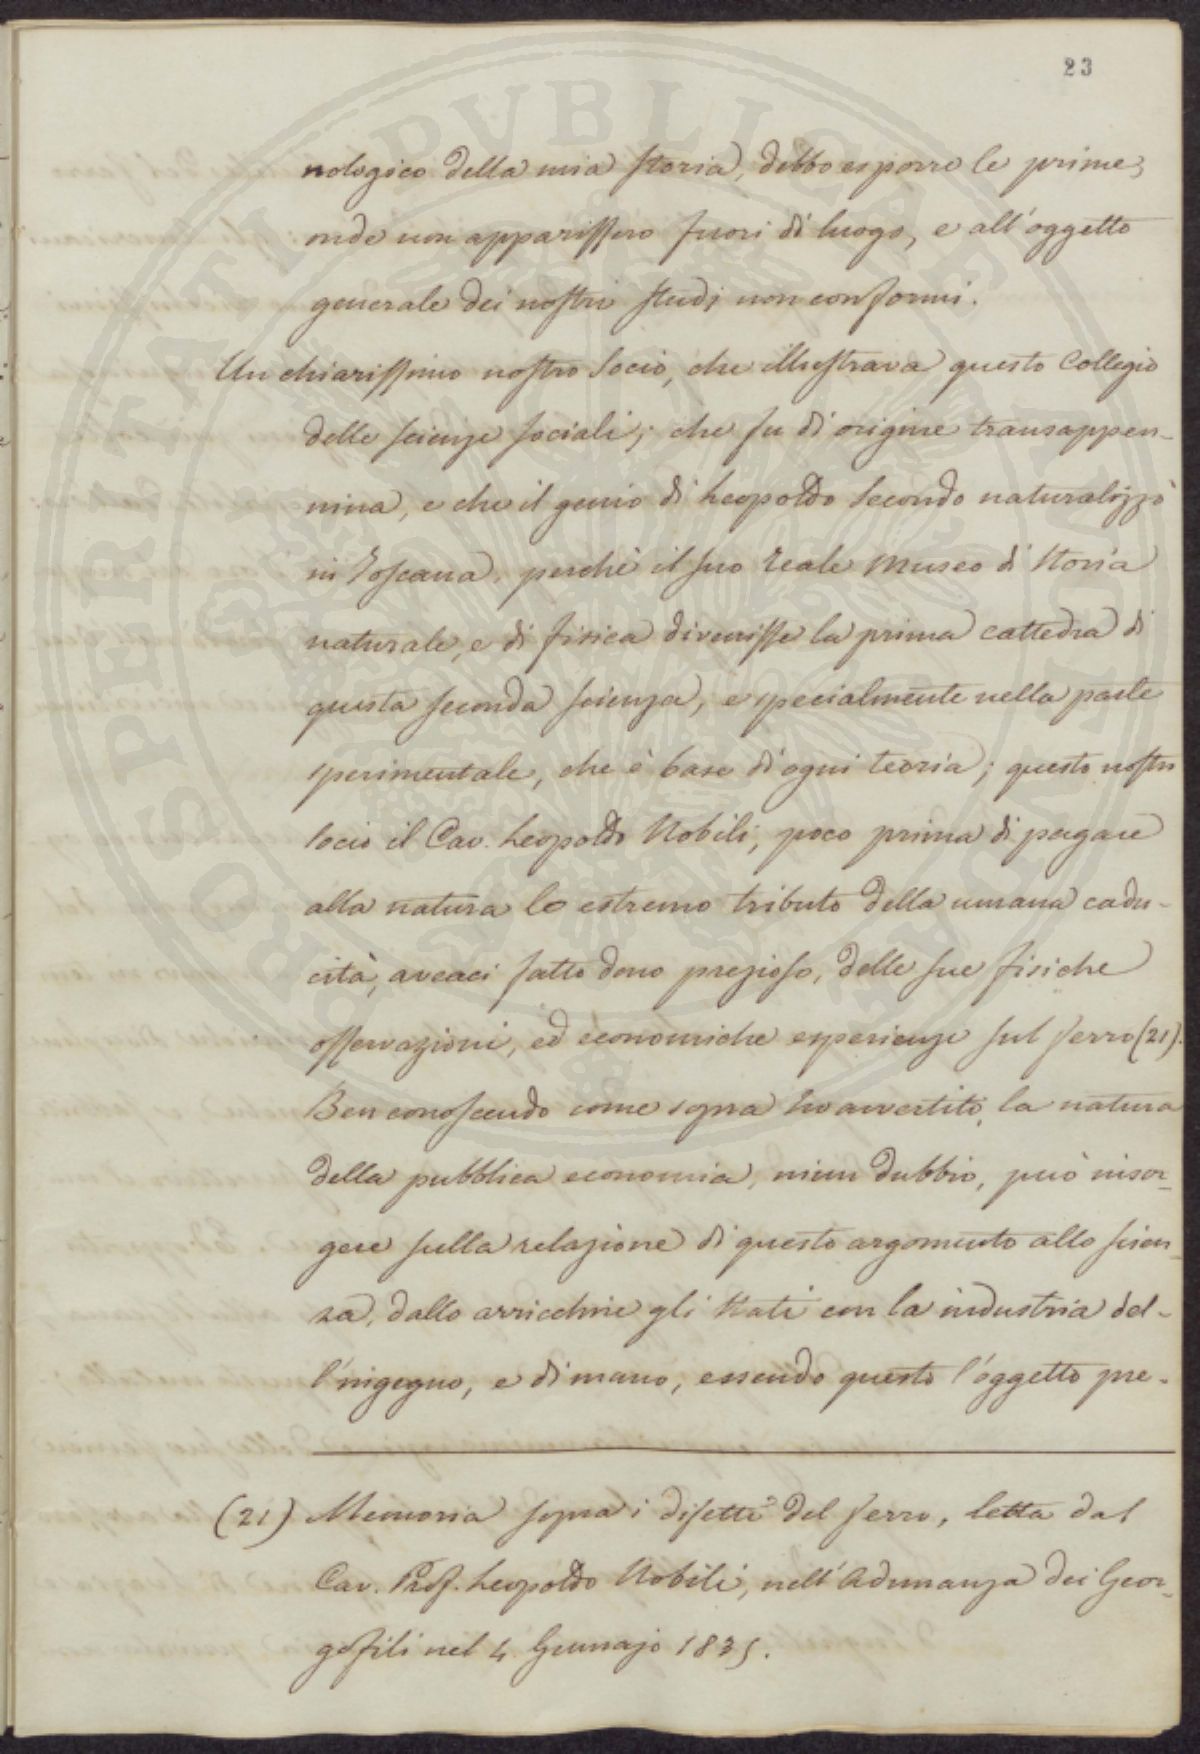 23
nologico della mia storia, debbo esporre le prime,
onde non apparissero fuori di luogo, e all'oggetto
generale dei nostri studj non conformi.
Un chiarissimo nostro Socio, che illustrava questo Collegio
delle scienze sociali; che fu di origine transappen-
nina, e che il genio di Leopoldo Secondo naturalizzò
in Toscana, perchè il suo Reale Museo di Storia
naturale, e di fisica divenisse la prima cattedra di
questa seconda scienza, e specialmente nella parte
sperimentale, che è base di ogni teoria; questo nostro
Socio il Cav. Leopoldo Nobili, poco prima di pagare
alla natura lo estremo tributo della umana cadu-
cità, aveaci fatto dono prezioso, delle sue fisiche
osservazioni, ed economiche esperienze sul ferro (21).
Ben conoscendo come sopra ho avvertito, la natura
della pubblica economia, niun dubbio, può insor-
gere sulla relazione di questo argomento allo scien-
za, dallo arricchire gli Stati con la industria del-
l'ingegno, e di mano, essendo questo l'oggetto pre-
(21) Memoria sopra i difetti del ferro, letta dal
Cav. Prof. Leopoldo Nobili, nell'Adunanza dei Geor-
gofili nel 4 Gennajo 1835.
PROSPERITATI PUBLICAE AUGENDAE